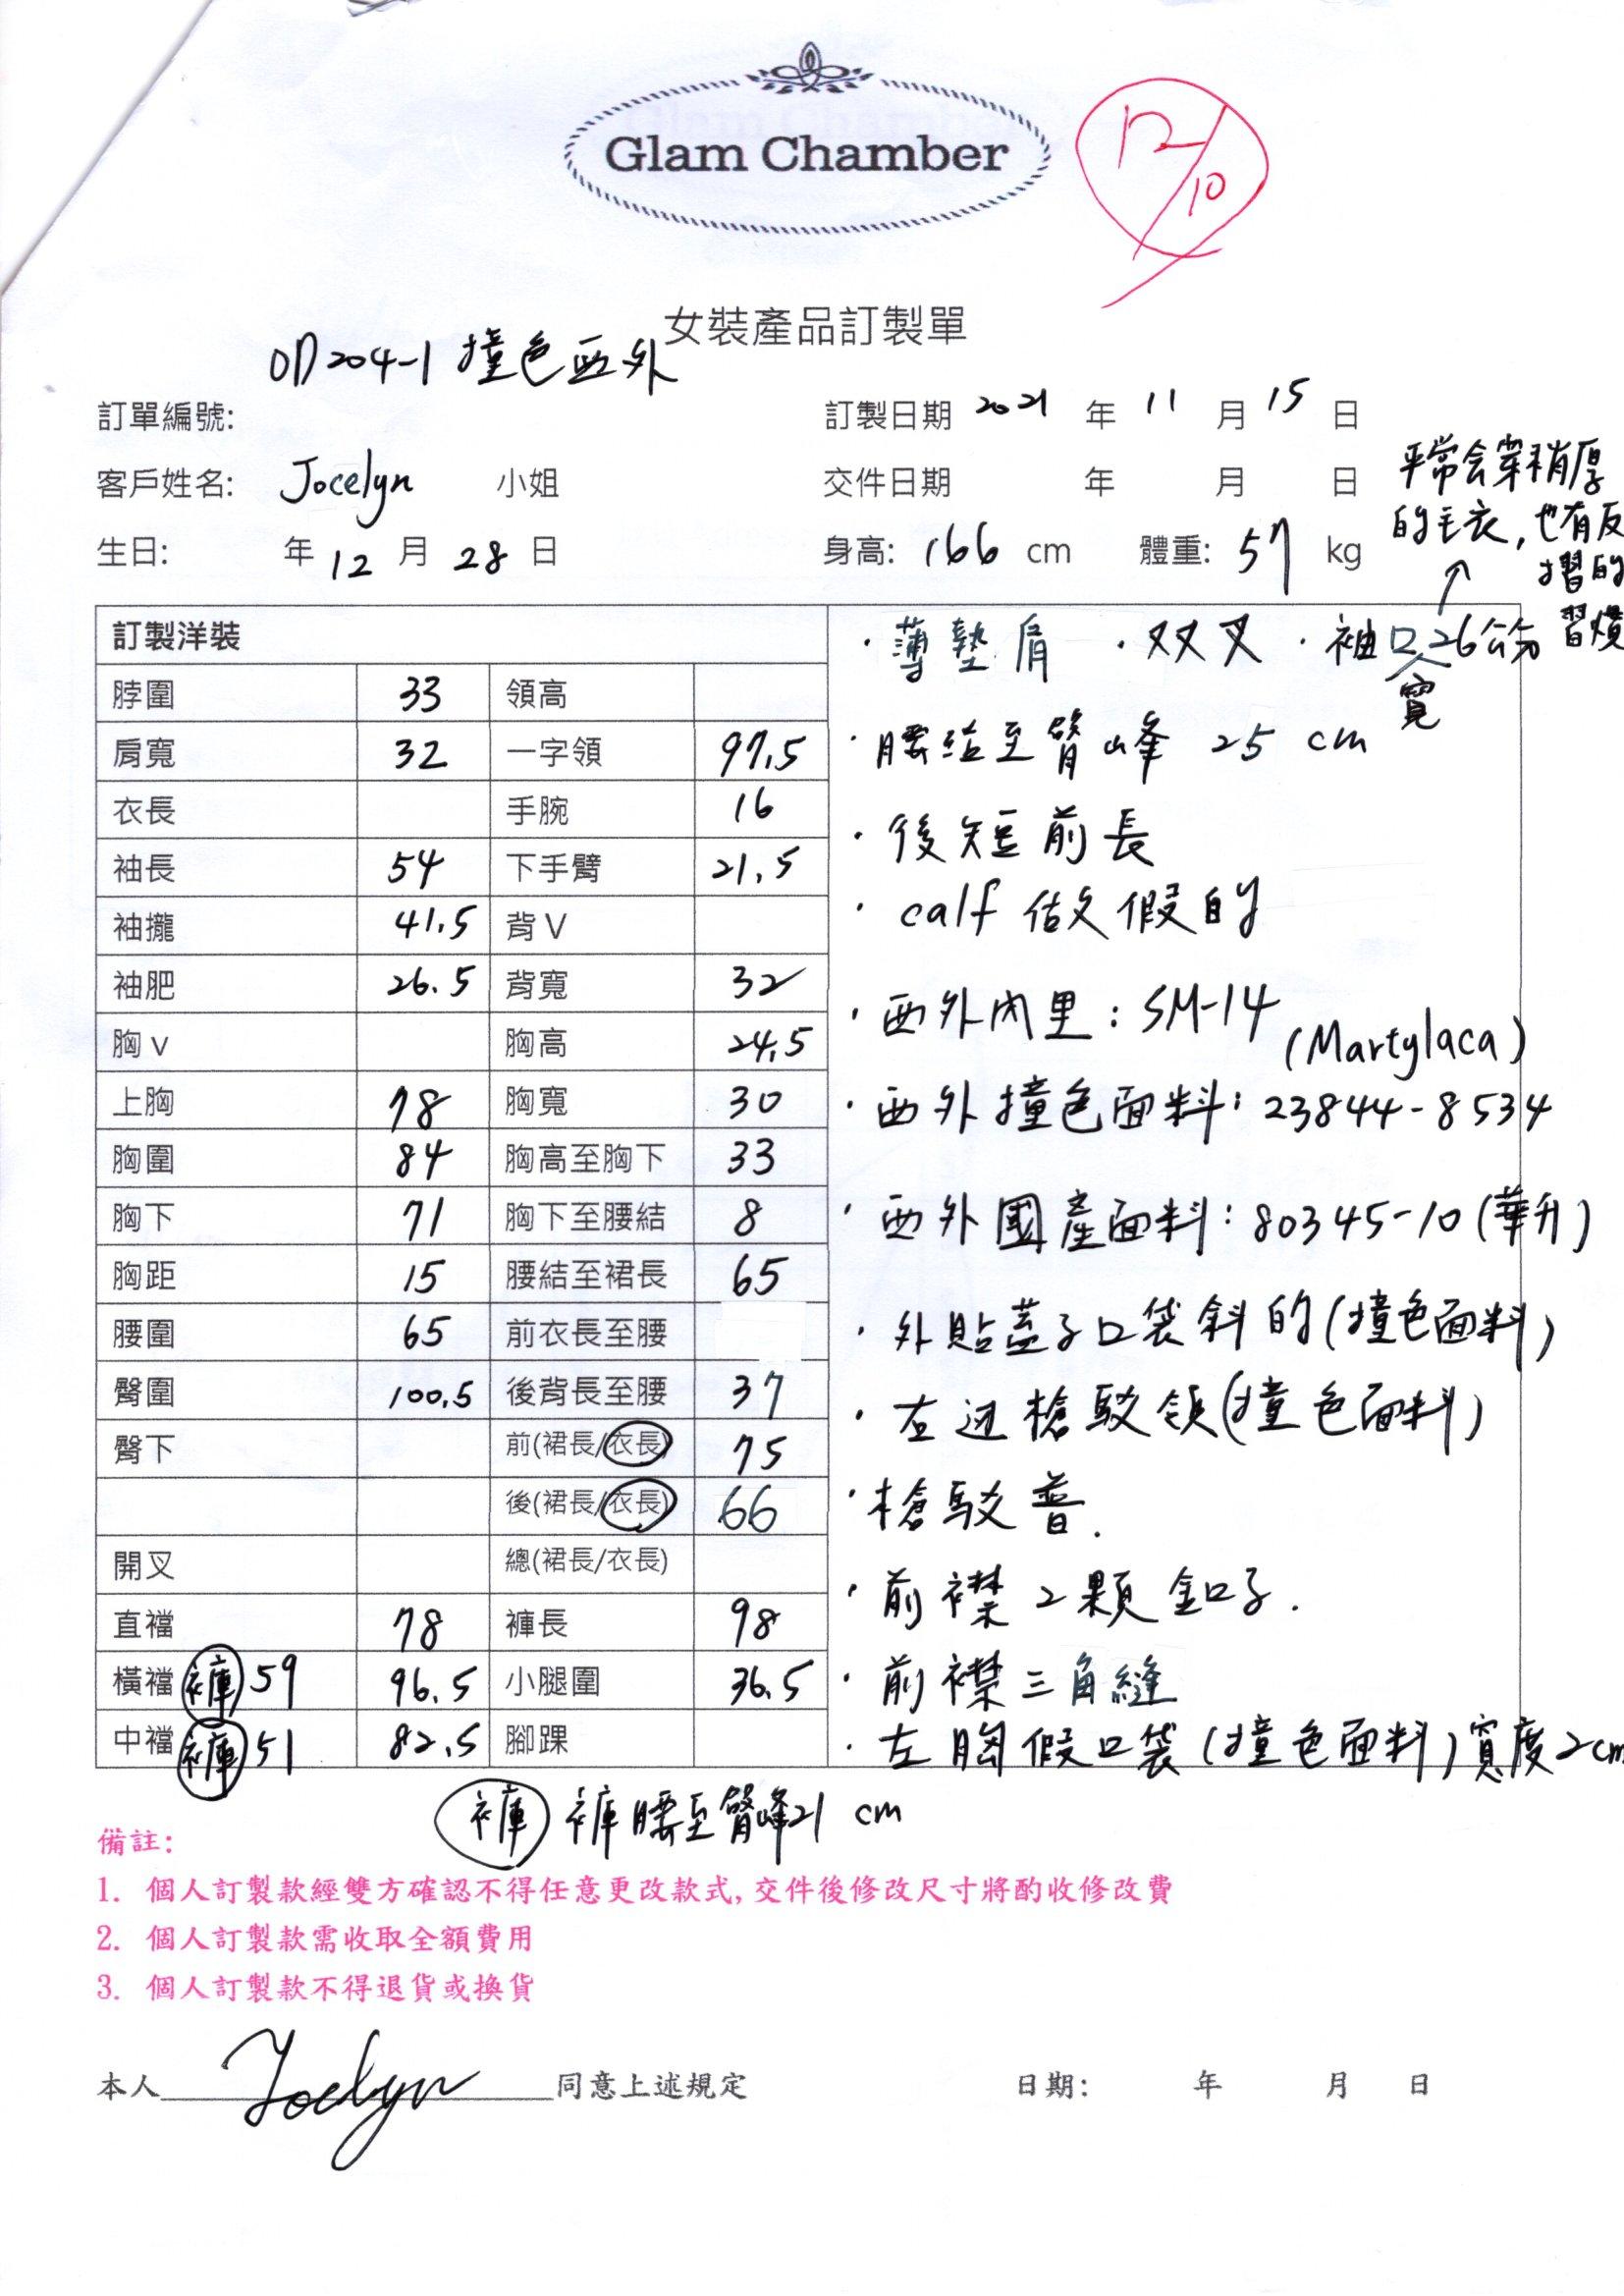 Glam Chamber
12/10
女裝產品訂製單
OD204-1 撞色西外
訂單編號: 訂製日期 2021 年 11 月 15 日
客戶姓名: Jocelyn 小姐 交件日期 年 月 日
生日: 年 12 月 28 日 身高: 166 cm 體重: 57 kg
平常会穿稍厚
的毛衣,也有反
摺的
習慣
訂製洋裝
脖圍 33 領高
肩寬 32 一字領 97.5
衣長 手腕 16
袖長 54 下手臂 21.5
袖攏 41.5 背 V
袖肥 26.5 背寬 32
胸 v 胸高 24.5
上胸 78 胸寬 30
胸圍 84 胸高至胸下 33
胸下 71 胸下至腰結 8
胸距 15 腰結至裙長 65
腰圍 65 前衣長至腰
臀圍 100.5 後背長至腰 37
臀下 前(裙長/衣長) 75
後(裙長/衣長) 66
開叉 總(裙長/衣長)
直襠 78 褲長 98
橫襠 褲 59 96.5 小腿圍 36.5
中襠 褲 51 82.5 腳踝
· 薄墊肩 · 双叉 · 袖口寬26公分
· 腰結至臀峰 25 cm
· 後短前長
· calf 做假的
· 西外內里: SM-14
(Martylaca)
· 西外撞色面料: 23844-8534
· 西外國產面料: 80345-10 (華升)
· 外貼蓋子口袋斜的(撞色面料)
· 左边槍駁領(撞色面料)
· 槍駁普.
· 前襟2顆釦子.
· 前襟三角縫
· 左胸假口袋(撞色面料)寬度2cm
褲 褲腰至臀峰21 cm
備註:
1. 個人訂製款經雙方確認不得任意更改款式,交件後修改尺寸將酌收修改費
2. 個人訂製款需收取全額費用
3. 個人訂製款不得退貨或換貨
本人 Jocelyn 同意上述規定 日期: 年 月 日